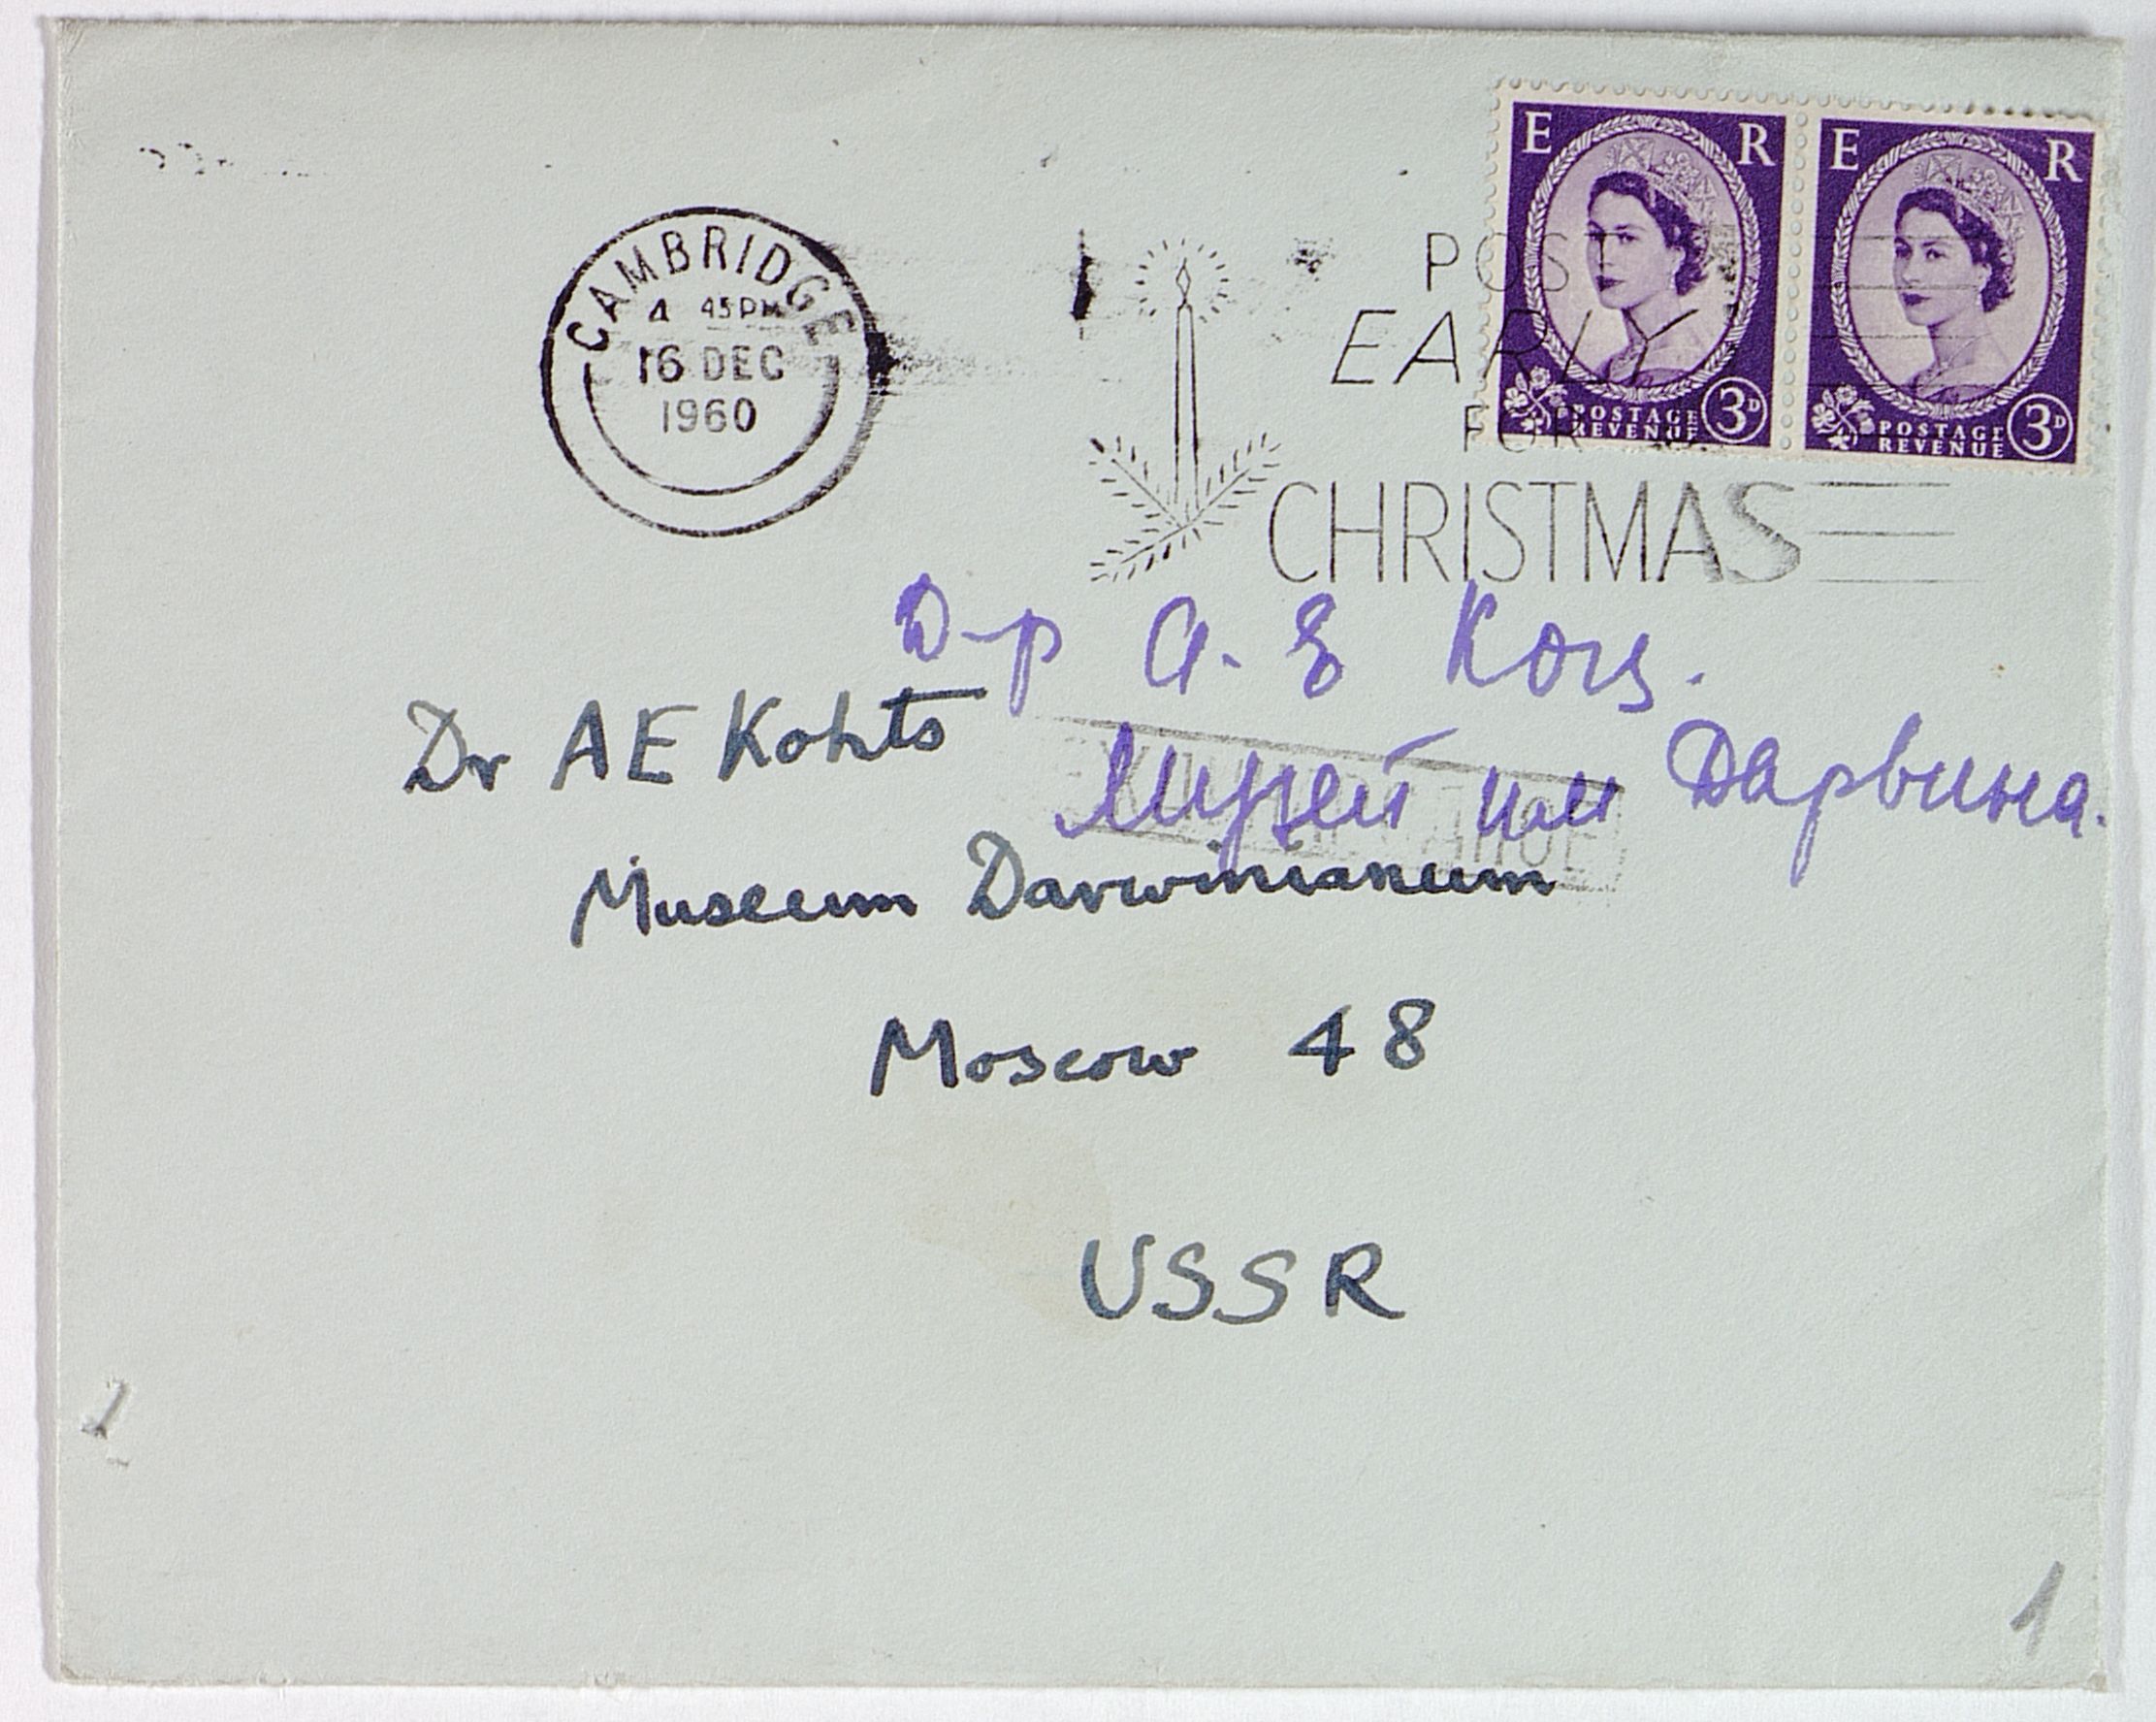 E R E R
CAMBRIDGE
4 45PM
16 DEC
1960
POST
EARLY
FOR
CHRISTMAS
POSTAGE REVENUE 3D
POSTAGE REVENUE 3D
Д-р А. Е Котс.
Dr AE Kohts
Музей им Дарвина.
Museum Darwinianum
Moscow 48
USSR
1